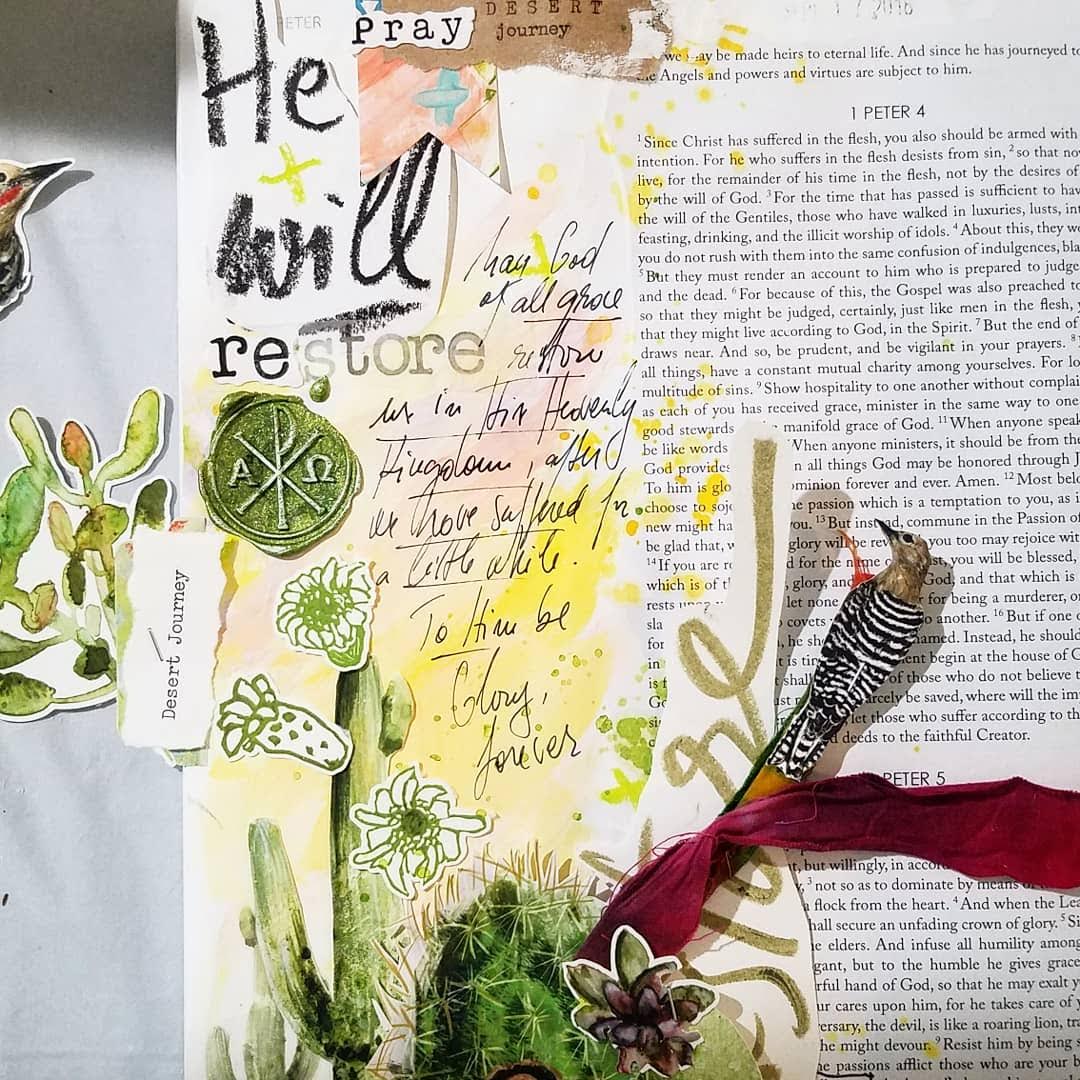 PETER
pray
DESERT
journey
He
will
restore
May God
of all grace
restore
us in His Heavenly
Kingdom, after
we have suffered for
a little while.
To Him be
Glory,
forever
Α Ω
Desert Journey
we may be made heirs to eternal life. And since he has journeyed to
Angels and powers and virtues are subject to him.
1 PETER 4
1 Since Christ has suffered in the flesh, you also should be armed with
intention. For he who suffers in the flesh desists from sin, 2 so that now
live, for the remainder of his time in the flesh, not by the desires of
by the will of God. 3 For the time that has passed is sufficient to have
the will of the Gentiles, those who have walked in luxuries, lusts, int
feasting, drinking, and the illicit worship of idols. 4 About this, they wo
you do not rush with them into the same confusion of indulgences, bla
5 But they must render an account to him who is prepared to judge
and the dead. 6 For because of this, the Gospel was also preached to
so that they might be judged, certainly, just like men in the flesh,
that they might live according to God, in the Spirit. 7 But the end of
draws near. And so, be prudent, and be vigilant in your prayers. 8
all things, have a constant mutual charity among yourselves. For lo
multitude of sins. 9 Show hospitality to one another without complai
as each of you has received grace, minister in the same way to one
good stewards manifold grace of God. 11 When anyone speak
be like words When anyone ministers, it should be from the
God provides n all things God may be honored through J
To him is glo ominion forever and ever. Amen. 12 Most belo
choose to sojo passion which is a temptation to you, as i
new might ha you. 13 But instead, commune in the Passion of
be glad that, w glory will be rev you too may rejoice wit
14 If you are r d for the name of you will be blessed,
which is of t glory, and God, and that which is
rests upon let none for being a murderer, or
sla covets another. 16 But if one o
for , he sh named. Instead, he should
in is tim ent begin at the house of G
is f shall of those who do not believe t
Go arcely be saved, where will the im
si let those who suffer according to th
d deeds to the faithful Creator.
PETER 5
t, but willingly, in accor
3 not so as to dominate by means of
a flock from the heart. 4 And when the Lea
hall secure an unfading crown of glory. 5 Si
e elders. And infuse all humility among
gant, but to the humble he gives grace
rful hand of God, so that he may exalt y
ur cares upon him, for he takes care of y
ersary, the devil, is like a roaring lion, tra
he might devour. 9 Resist him by being s
passions afflict those who are your b